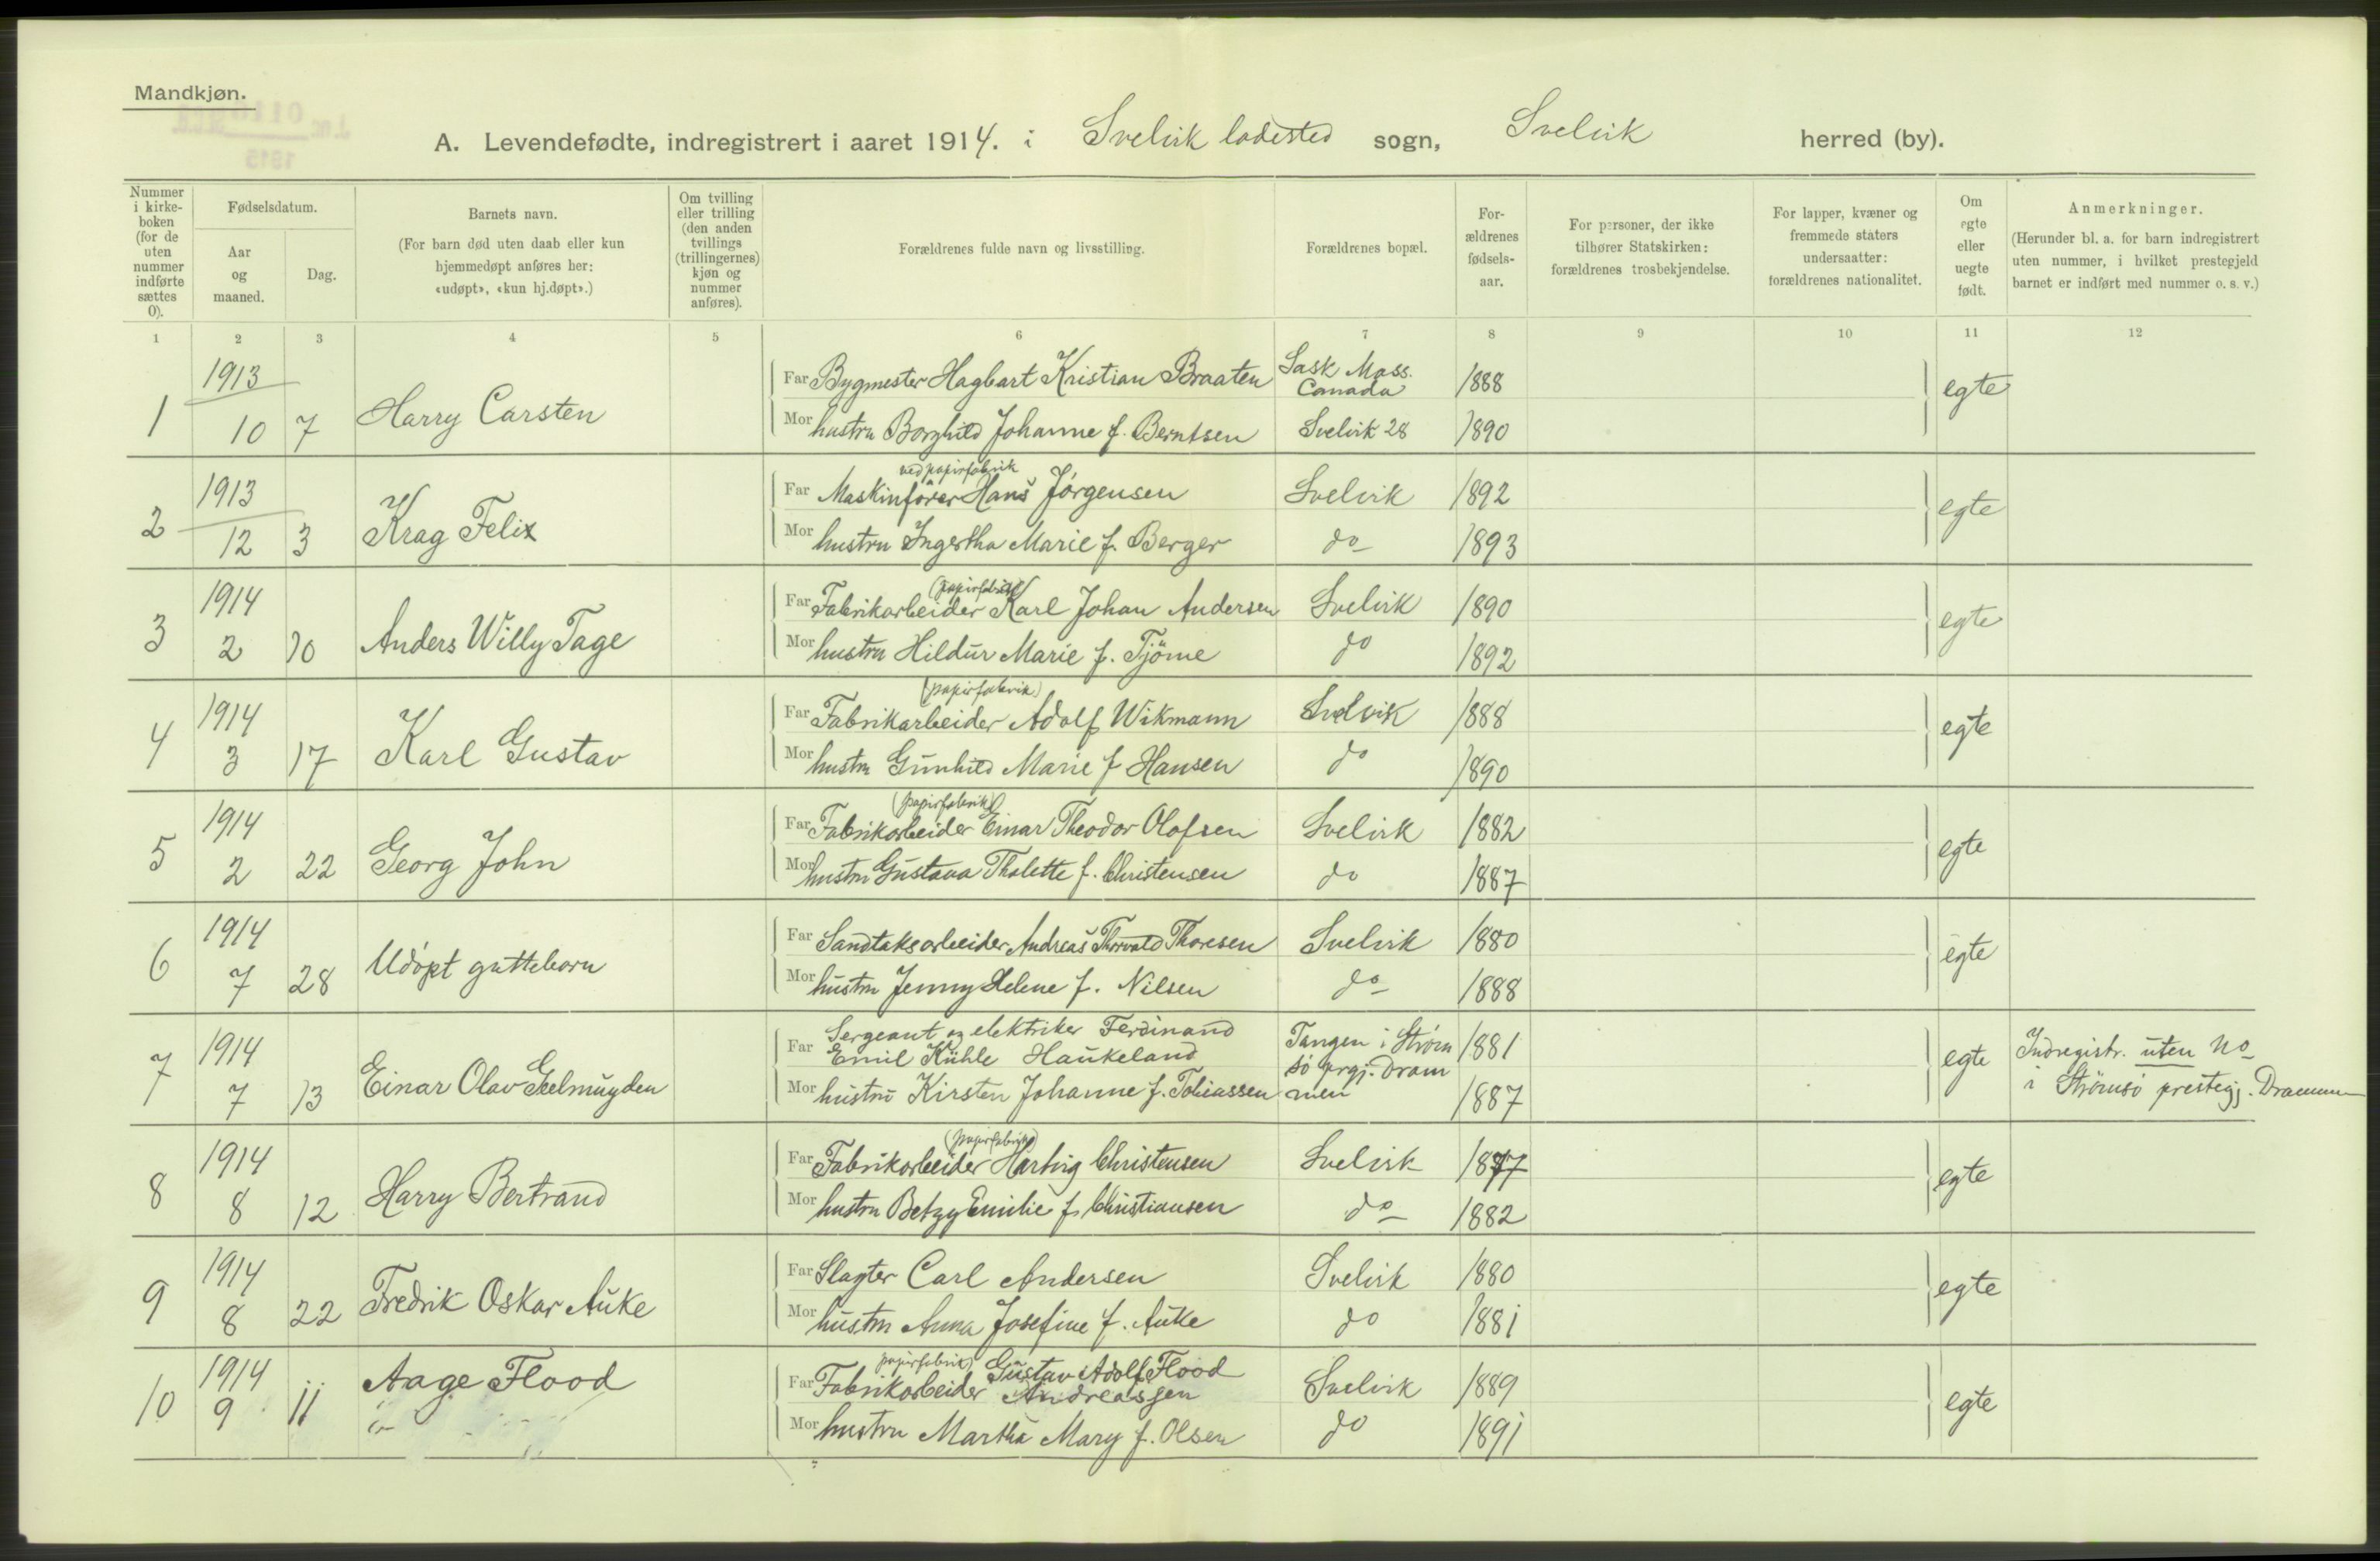 Mandkjøn.
A. Levendefødte, indregistrert i aaret 1914. i Svelvik ladested sogn, Svelvik herred (by).
Nummer i kirke-boken (for de uten nummer indførte sættes 0).
Fødselsdatum.
Aar og maaned.
Dag.
Barnets navn.
(For barn død uten daab eller kun hjemmedøpt anføres her: «udøpt», «kun hj.døpt».)
Om tvilling eller trilling (den anden tvillings (trillingernes) kjøn og nummer anføres).
Forældrenes fulde navn og livsstilling.
Forældrenes bopæl.
For-ældrenes fødsels-aar.
For personer, der ikke tilhører Statskirken: forældrenes trosbekjendelse.
For lapper, kvæner og fremmede staters undersaatter: forældrenes nationalitet.
Om egte eller uegte født.
Anmerkninger.
(Herunder bl. a. for barn indregistrert uten nummer, i hvilket prestegjeld barnet er indført med nummer o. s. v.)
1 2 3 4 5 6 7 8 9 10 11 12
1 1913 10 7 Harry Carsten
Far Bygmester Hagbart Kristian Braaten Sask Mass. Canada 1888 egte
Mor hustru Borghild Johanne f. Berntsen Svelvik 28 1890
2 1913 12 3 Krag Felix
ved papirfabrik
Far Maskinfører Hans Jørgensen Svelvik 1892 egte
Mor hustru Ingertha Marie f. Berger do 1893
3 1914 2 10 Anders Willy Tage
(papirfabrik)
Far Fabrikarbeider Karl Johan Andersen Svelvik 1890 egte
Mor hustru Hildur Marie f. Tjöme do 1892
4 1914 3 17 Karl Gustav
(papirfabrik)
Far Fabrikarbeider Adolf Wikmann Svelvik 1888 egte
Mor hustru Gunhild Marie f Hansen do 1890
5 1914 2 22 Georg John
(papirfabrik)
Far Fabrikarbeider Einar Theodor Olofsen Svelvik 1882 egte
Mor hustru Gustava Thalette f. Christensen do 1887
6 1914 7 28 Udöpt guttebarn
Far Sandtaksarbeider Andreas Thorvald Thoresen Svelvik 1880 egte
Mor hustru Jenny Helene f. Nilsen do 1888
7 1914 7 13 Einar Olav Geelmuyden
Far Sergeant og elektriker Ferdinand Emil Kühle Haukeland Tangen i Strøm 1881 egte Indregistr. uten No
sö prgj. Dram
Mor hustru Kirsten Johanne f. Tobiassen men 1887 i Strömsö prestegj. Drammen
8 1914 8 12 Harry Bertrand
(papirfabrik)
Far Fabrikarbeider Hartvig Christensen Svelvik 1877 egte
Mor hustru Betzy Emilie f. Christiansen do 1882
9 1914 8 22 Fredrik Oskar Auke
Far Slagter Carl Andersen Svelvik 1880 egte
Mor hustru Anna Josefine f. Auke do 1881
10 1914 9 11 Aage Flood
papirfabrik) Gustav Adolf Flood
Far Fabrikarbeider Andreassen Svelvik 1889 egte
Mor hustru Martha Mary f. Olsen do 1891